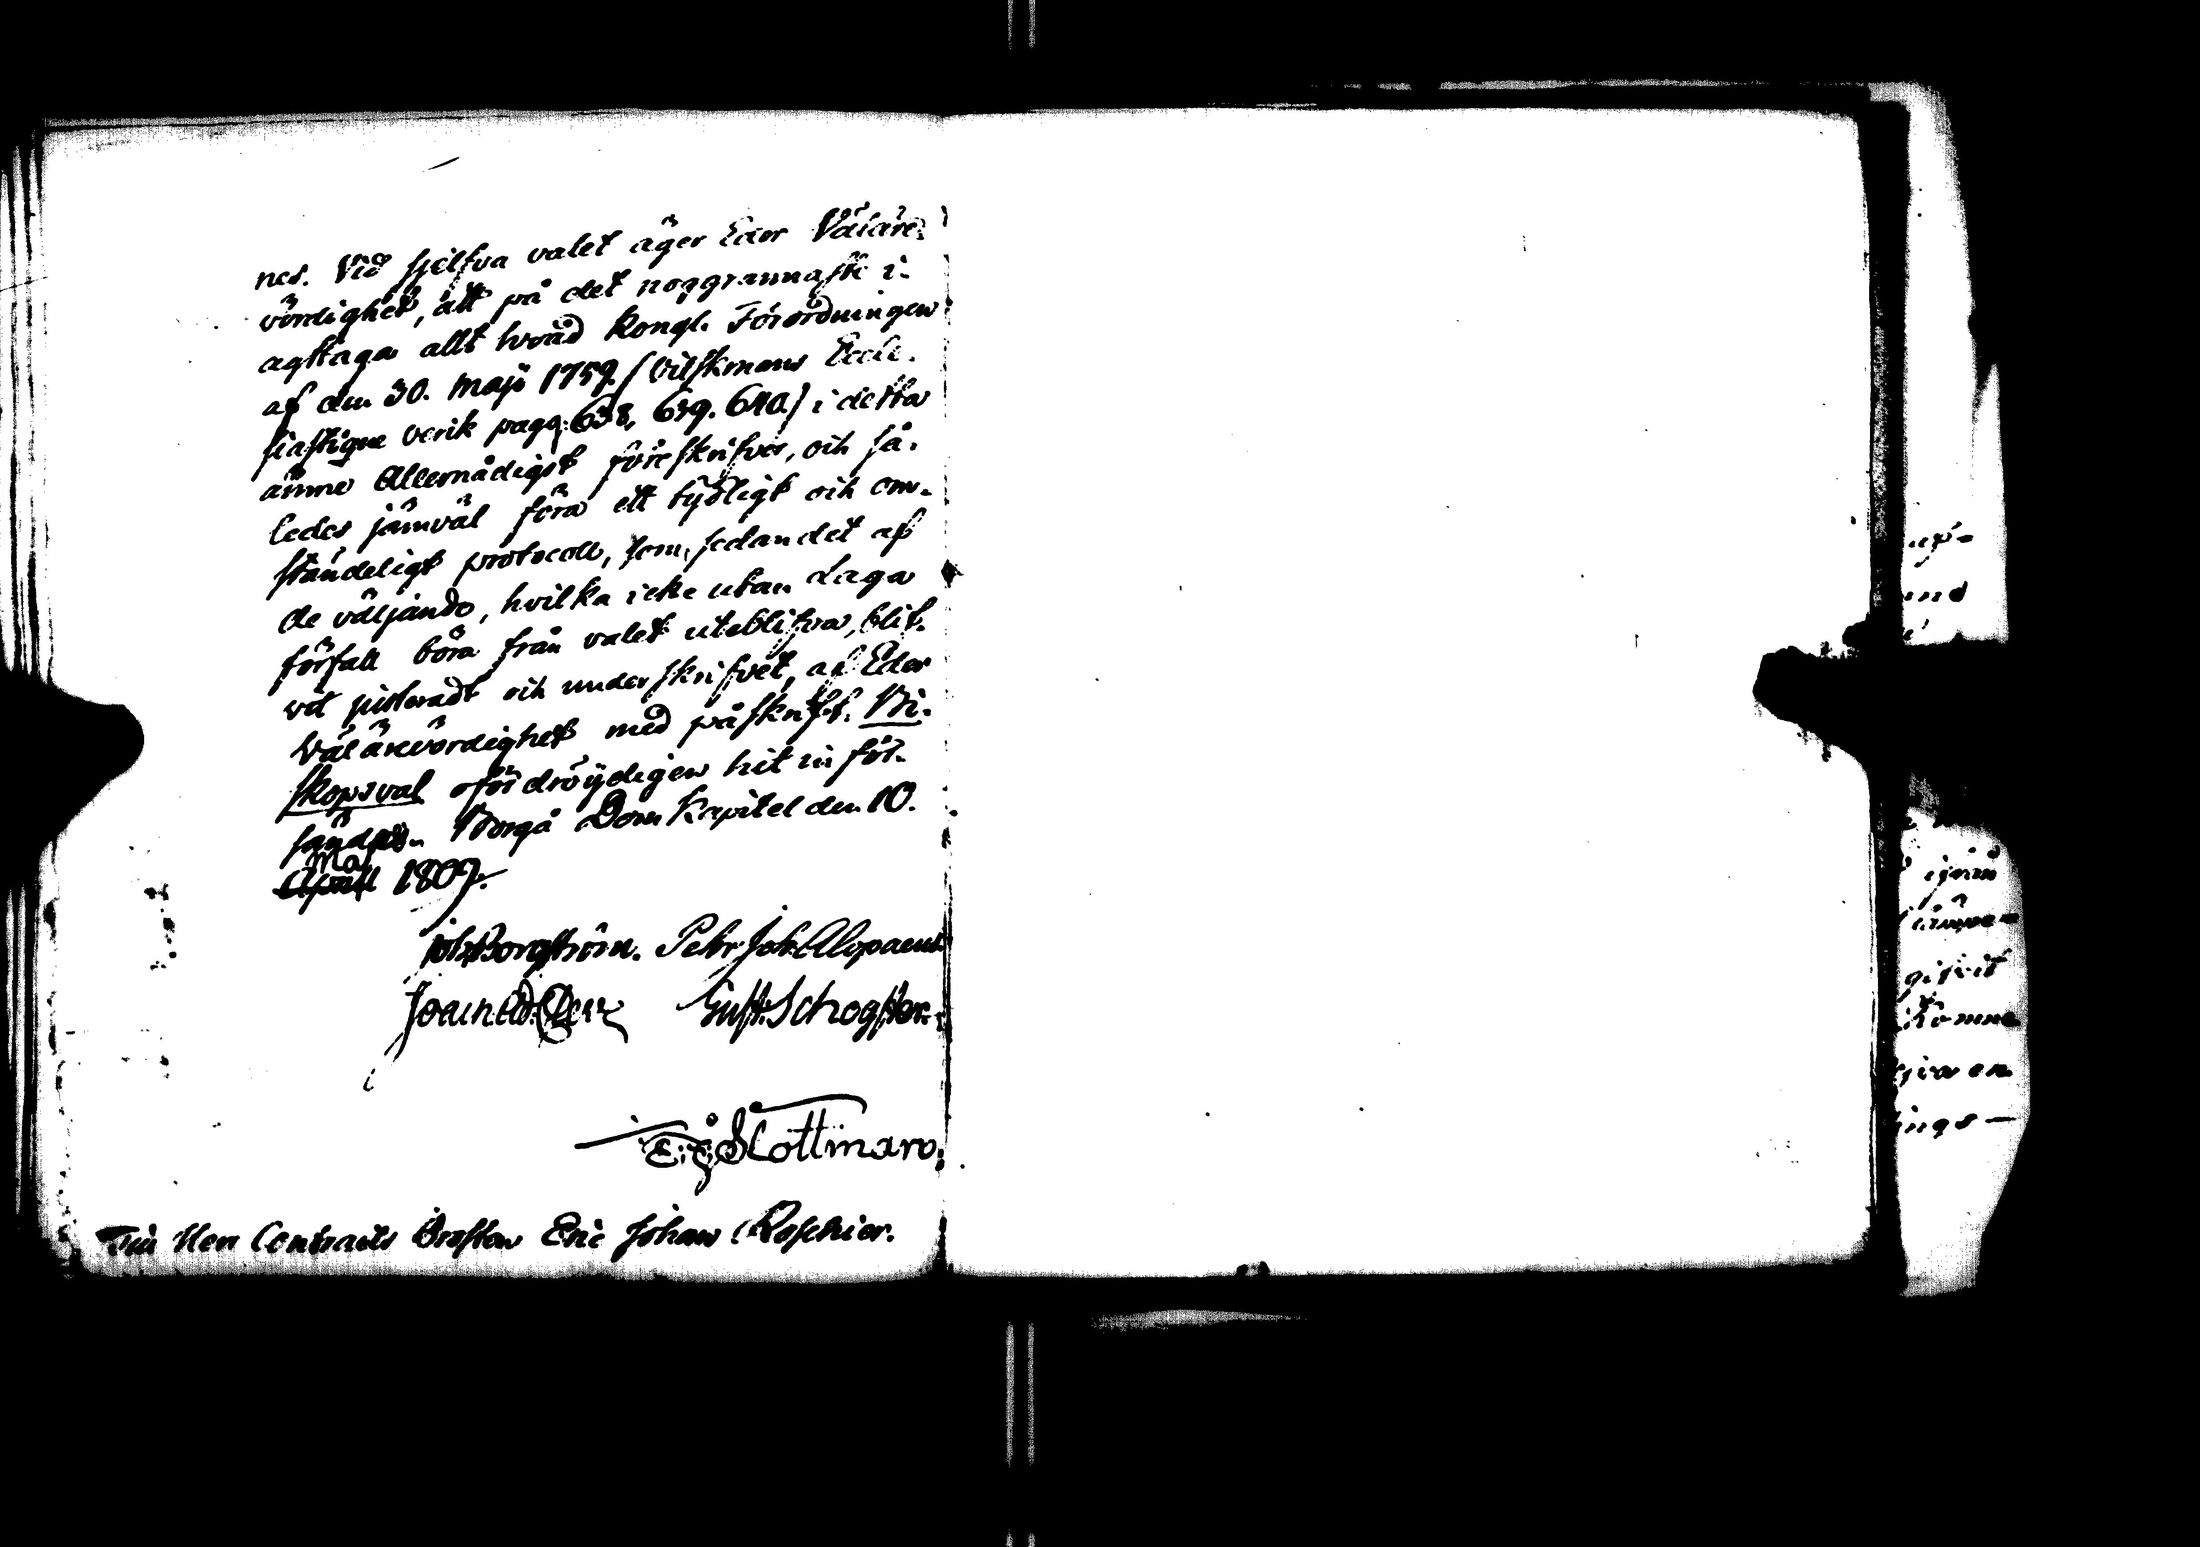 nes. Vid sjelfva valet äger Eder Väläre-
vördighet, att på det noggrannaste i-
agttaga allt hvad Kongl. Förordningen
af den 30. Maji 1759. (Vilskmans Eccle-
siastique Verik pagg. 638, 639. 640.) i detta
ämne Allernådigst föreskrifver, och så-
ledes jämväl föra ett tydligt och om-
ständeligt protocoll, som, sedan det af
de väljande, hvilka icke utan Laga
förfall böra från valet uteblifva, blif-
vit justeradt och underskrifvet, af Eder
Välärevördighet med påskrift: Bi-
skopsval ofördröijeligen hit in för-
sändes. Borgå Dom Kapitel den 10.
Maji 1809.
Joh. Borgström. Petr. Joh. Alopaeus
Gust. Schogster.
Slottman
Till Herr Contracts Prosten Eric Johan Roschier.
up-
und
gifvit
komne
ings-